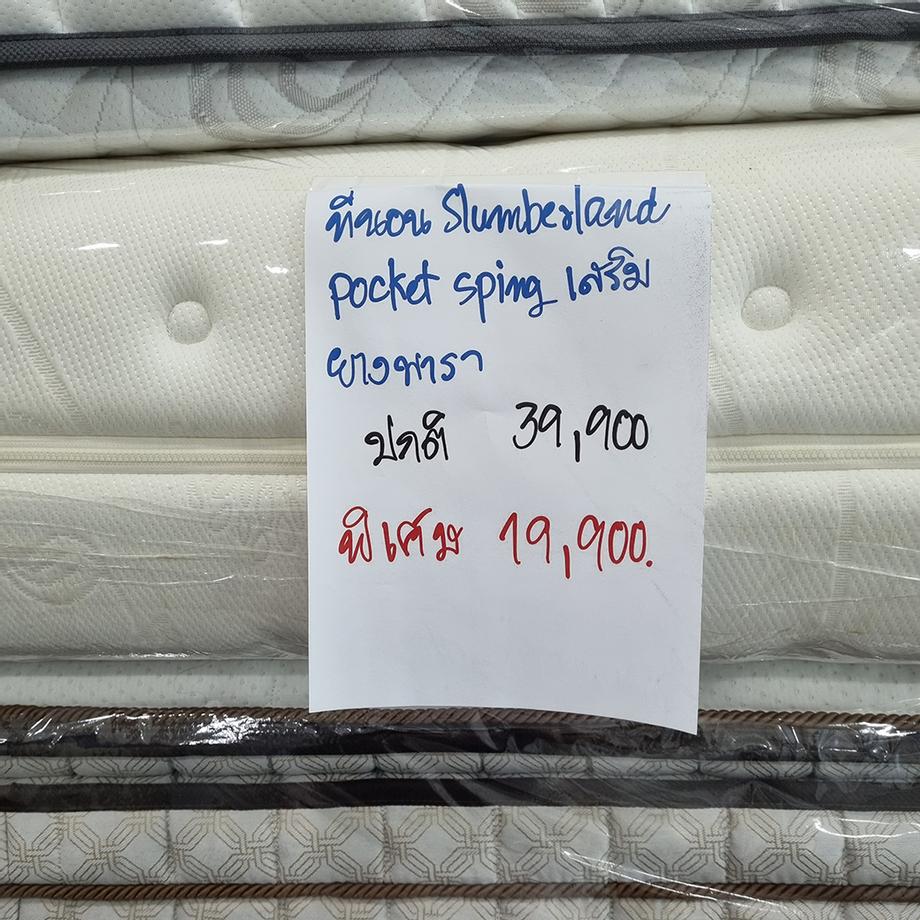 ที่นอน Slumberland
pocket sping เสริม
ยางพารา
ปกติ 39,900
พิเศษ 19,900.